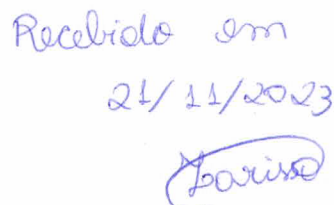 Recebido em
21/11/2023
Larissa